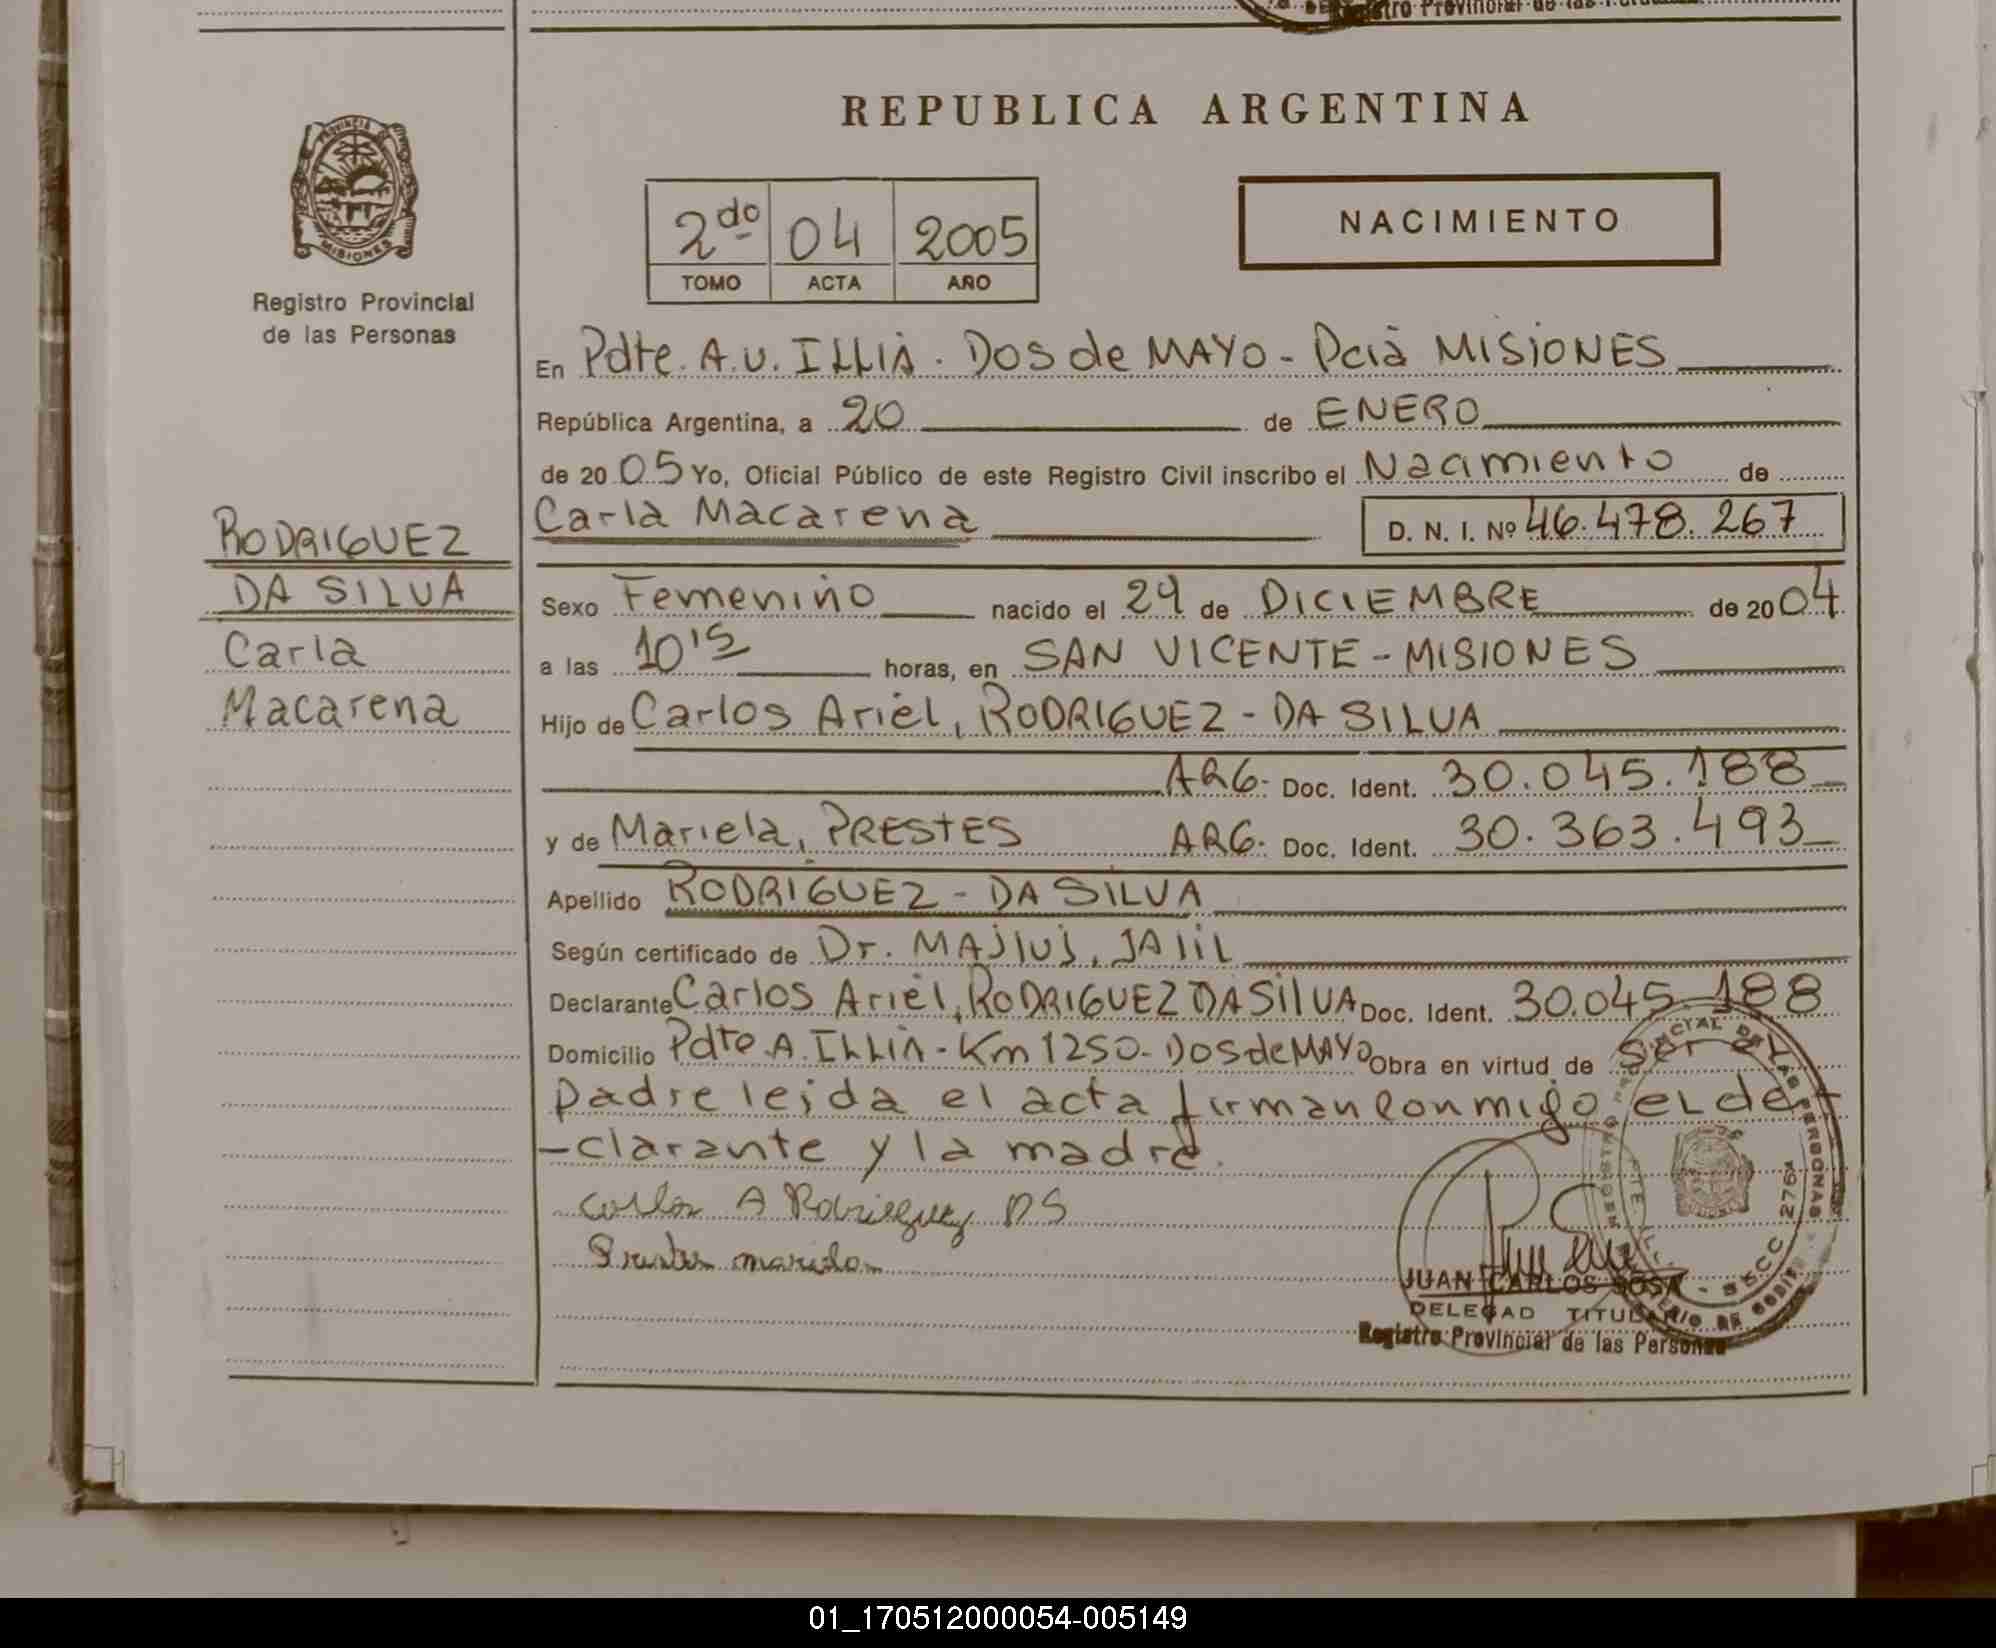 Registro Provincial de las
REPUBLICA ARGENTINA
PROVINCIA DE
MISIONES
Registro Provincial
de las Personas
2do 04 2005
TOMO ACTA AÑO
NACIMIENTO
En Pdte. A.U. ILLIA. DOS de MAYO - Pcia MISIONES
República Argentina, a 20 de ENERO
de 20 05 Yo, Oficial Público de este Registro Civil inscribo el Nacimiento de
Carla Macarena D. N. I. Nº 46.478.267
RODRIGUEZ
DA SILVA
Carla
Macarena
Sexo Femenino nacido el 29 de DICIEMBRE de 20 04
a las 10'15 horas, en SAN VICENTE - MISIONES
Hijo de Carlos Ariel, RODRIGUEZ - DA SILVA
ARG. Doc. Ident. 30.045.188
y de Mariela, PRESTES ARG. Doc. Ident. 30.363.493
Apellido RODRIGUEZ - DA SILVA
Según certificado de Dr. MAJLUJ, JALIL
Declarante Carlos Ariel, RODRIGUEZ DA SILVA Doc. Ident. 30.045.188
Domicilio Pdte. A. ILLIA - Km 1250 - DOS de MAYO Obra en virtud de Ser el
padre leida el acta firman conmigo el de
-clarante y la madre.
Carlos A Rodriguez DS
JUAN CARLOS SOSA
DELEGAD TITULAR
Registro Provincial de las Personas
01_170512000054-005149